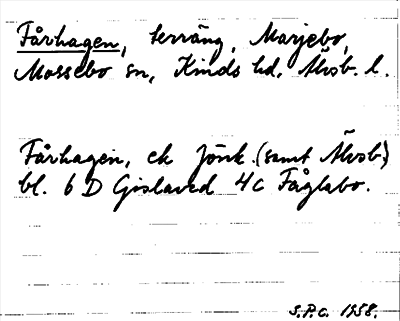 Fårhagen, terräng, Marjebo,
Mossebo sn, Kinds hd, Älvsb. l.
Fårhagen, ek Jönk. (samt Älvsb.)
bl. 6 D Gislaved 4c Fåglabo.
S.P.C. 1958.